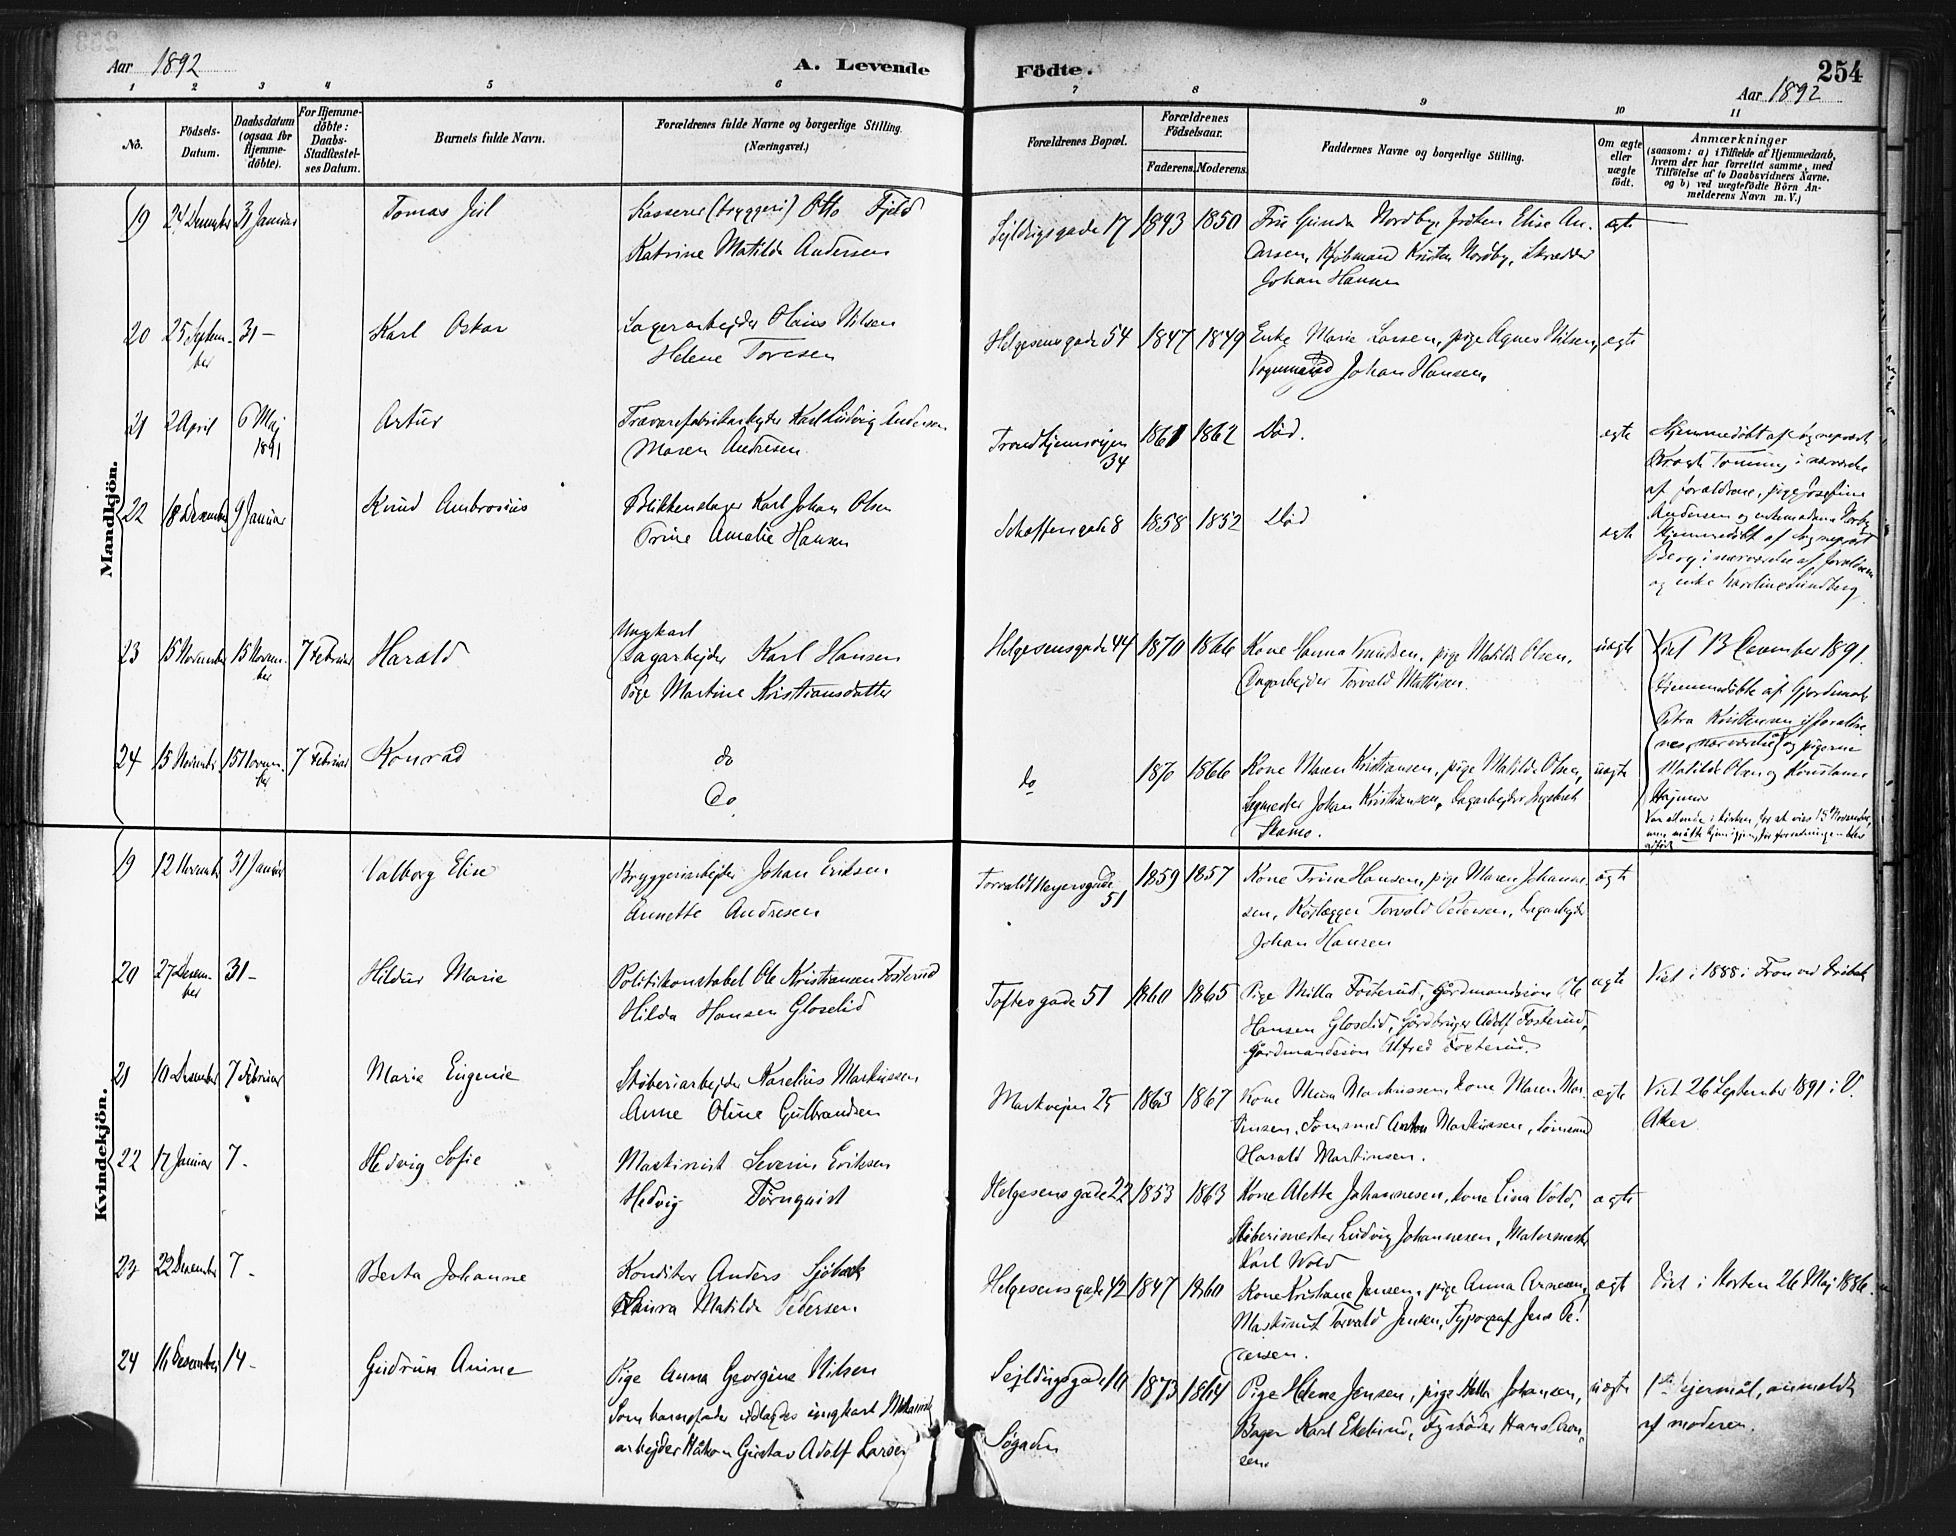 Aar 1892
A. Levende
Födte.
254
Aar 1892
1 2 3 4 5 6 7 8 9 10 11
No.
Födsels-Datum.
Daabsdatum (ogsaa for Hjemme-döbte).
For Hjemme-döbte: Daabs-Stadfæstel-ses Datum.
Barnets fulde Navn.
Forældrenes fulde Navne og borgerlige Stilling. (Næringsvei.)
Forældrenes Bopæl.
Forældrenes Födselsaar.
Faderens. Moderens.
Faddernes Navne og borgerlige Stilling.
Om ægte eller uægte födt.
Anmærkninger
(saasom: a) i Tilfælde af Hjemmedaab, hvem der har forrettet samme, med Tilföielse af to Daabsvidners Navne, og b) ved uægtefödte Börn Anmelderens Navn m. V.)
Mandkjön.
19 24 Desember 31 Januar Tomas Jul
Kasserer (bryggeri) Otto Fjeld
Katrine Matilde Andersen
Sejldugsgade 17 1843 1850
Fru Gunda Nordby, frøken Elise An-
Carsen, Kjøbmand Kristen Nordby, Skrædder
Johan Hansen
ægte
20 25 September 31 – Karl Oskar
Lagerarbejder Olaus Nilsen
Helene Toresen
Helgesensgade 54 1847 1849
Enke Marie Larsen, pige Agnes Nilsen,
Vognmand Johan Hansen.
ægte
21 2 April 6 Maj 1891 Artur
Trævarefabrikarbejder Karl Ludvig Andersen
Maren Andresen
Trondhjemsvejen 34 1861 1862 Død.
ægte
Hjemmedøbt af sogneprest
Krogh Tonning i nærværelse
af forældrene, pige Josefine
Andersen og enkemadam Norby
22 18 Desember 9 Januar Knud Ambrosius
Blikkenslager Karl Johan Olsen
Trine Amalie Hansen
Schoffensgade 8 1858 1852 Død
ægte
Hjemmedøbt af sogneprest
Berg i nærværelse af forældrene
og enke Karoline Lundberg.
23 15 November 15 November 7 Februar Harald
Ungkarl
Sagarbejder Karl Hansen
Pige Martine Kristiansdatter
Helgesensgade 44 1870 1866
Kone Hanna Knudsen, pige Matilde Olsen,
Sagarbejder Torvald Mathisen.
uægte
Viet 13 December 1891.
Hjemmedøbte af Gjordmoder
Petra Kristensen i forældre
nes nærværelse og pigerne
24 15 November 15 November 7 Februar Konrad
do
Do
do 1870 1866
Kone Maren Kristiansen, pige Matilde Olsen,
Johan Kristiansen, sagarbejder Ingebret
Skamo.
uægte
Matilde Olsen og Konstanse
Kvindekjön.
19 12 November 31 Januar Valborg Elise
Bryggeriarbejder Johan Eriksen
Annette Andresen
Torvald Meyersgade 51 1859 1857
Kone Trine Hansen, pige Maren Johanne-
sen, Rørlægger Torvald Pedersen, sagarbejder
Johan Hansen
ægte
20 27 Desember 31 – Hildur Marie
Politikonstabel Ole Kristiansen Fosterud
Hilda Hansen Gloslid
Toftesgade 51 1860 1865
Pige Milla Fosterud, Gårdmandssøn Ole
Hansen Gloslid, Gårdbruger Adolf Fosterud,
Gårdmandssøn Alfred Fosterud.
ægte
Viet i 1888 i Fron ved Drøbak
21 10 Desember 7 Februar Marie Eugenie
Støberiarbejder Karelius Markussen
Anne Oline Gulbrandsen
Markvejen 25 1863 1867
Kone Mina Markussen, kone Maren Mar-
tinsen, Tomsmed Anton Markussen, Tomsmed
Harald Martinsen.
ægte
Viet 26 September 1891 i V.
Aker
22 17 Januar 7 – Hedvig Sofie
Maskinist Severin Eriksen
Hedvig Törnqvist
Helgesensgade 22 1853 1863
Kone Alette Johannesen, kone Lina Vold,
Støberimester Ludvig Johannesen, Malermester
Karl Wold
ægte
23 22 Desember 7 – Berta Johanne
Konditor Anders Sjöbeck
Laura Matilde Pedersen
Helgesensgade 42 1847 1860
Kone Kristiane Jensen, pige Anna Arnesen,
Maskinist Torvald Jensen, Typograf Jens Pe-
dersen.
ægte
Viet i Horten 26 Maj 1886.
24 11 Desember 14 – Gudrun Anine
Pige Anna Georgine Nilsen
Som barnefader udlagdes ungkarl Mekanisk
arbejder Håkon Gustav Adolf Larsen
Sejldugsgade 10 1873 1864
Søgaden
Pige Helene Jensen, pige Hilda Johansen,
Bager Karl Ekelund, Fyrbøder Hans Lar-
sen.
uægte
1ste lejermål, anmeldt
af moderen.